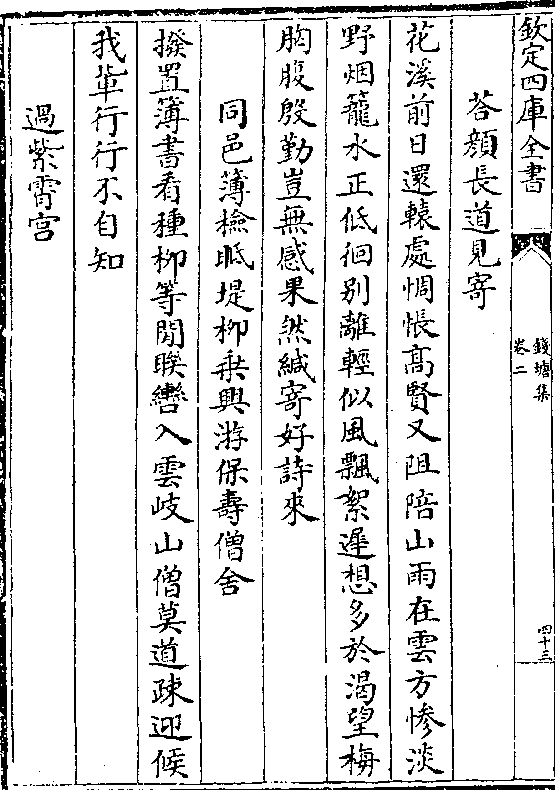 欽定四庫全書
錢塘集
卷二
四十三
荅顔長道見寄
花溪前日還轅處惆悵髙賢又阻陪山雨在雲方慘淡
野烟籠水正低徊别離輕似風飄絮遲想多於渴望梅
胸腹殷勤豈無感果然緘寄好詩來
同邑簿檢眂堤柳乗興㳺保壽僧舍
撥置簿書看種柳等閒聨轡入雲岐山僧莫道疎迎候
我軰行行不自知
過紫霄宫